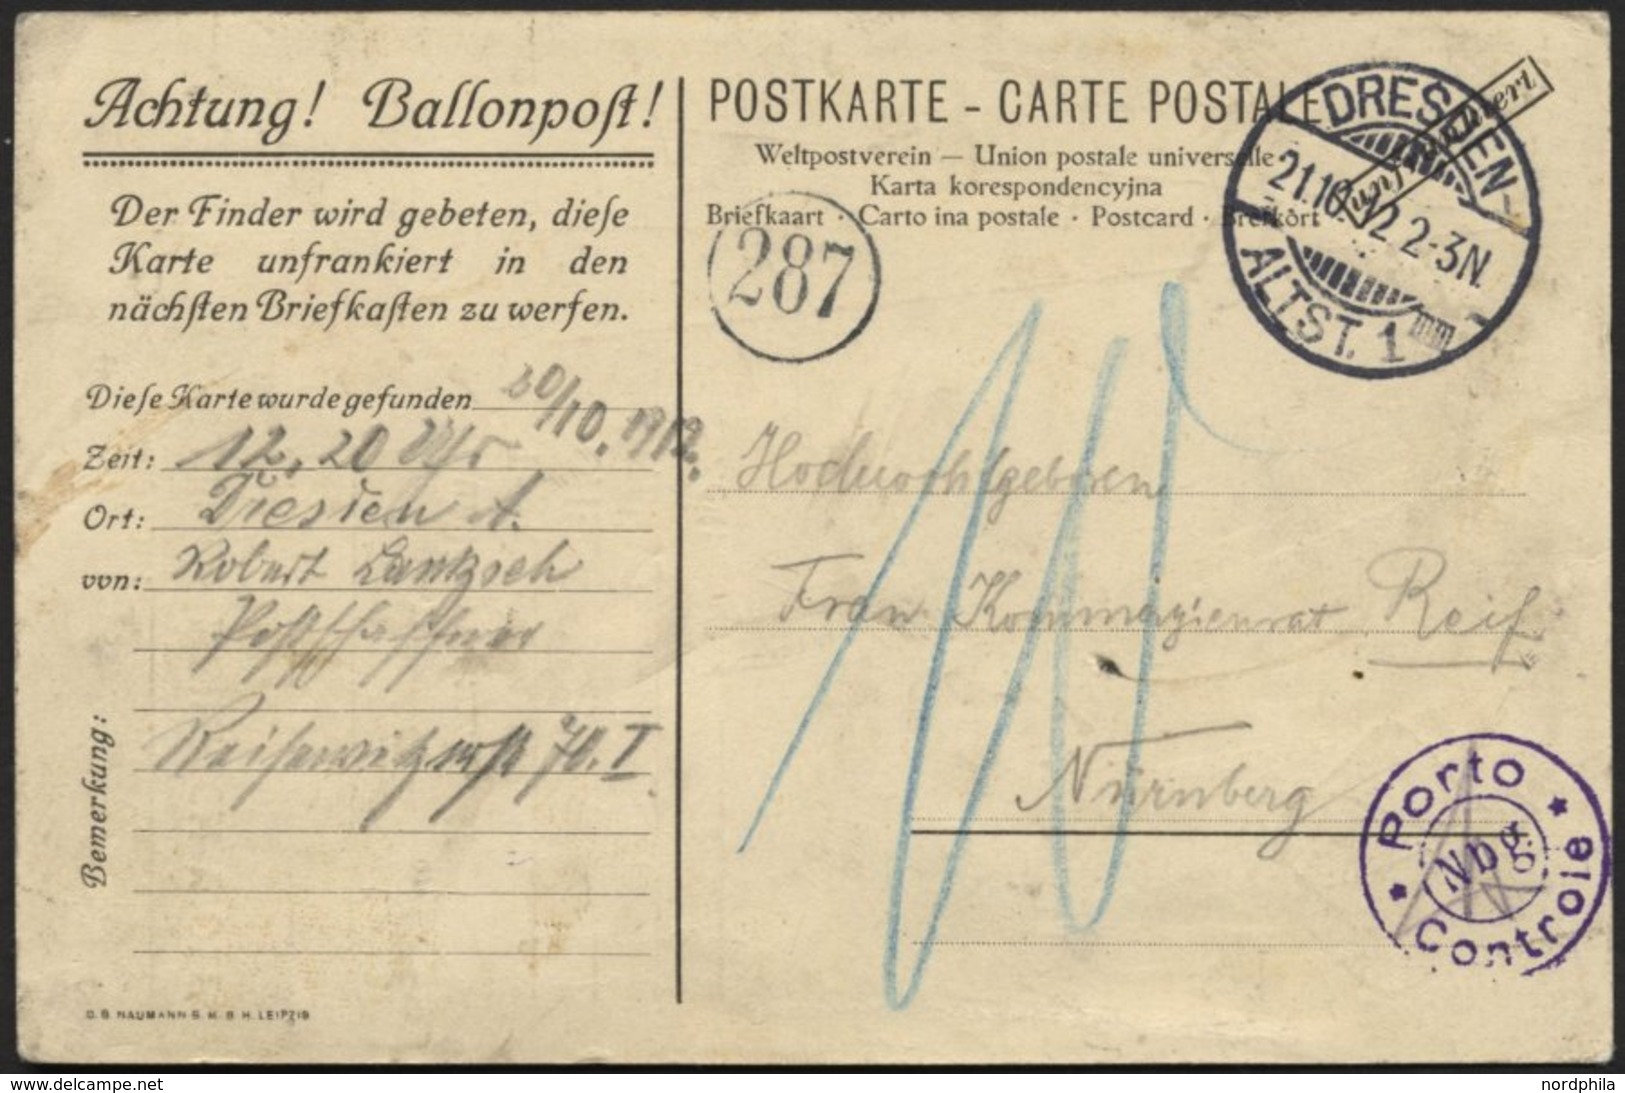 Achtung! Ballonpost!
Der Finder wird gebeten, diese
Karte unfrankiert in den
nächsten Briefkasten zu werfen.
Diese Karte wurde gefunden 20/10. 1912.
Zeit: 12,20 Uhr
Ort: Dresden A.
von: Robert
Postschaffner
Reisewitzerstr 70. I
Bemerkung:
D. B. NAUMANN G. M. B. H. LEIPZIG
POSTKARTE - CARTE POSTALE
Weltpostverein — Union postale universelle
Karta korespondencyjna
Briefkaart · Carto ina postale · Postcard · Brefkort
287
unfrankiert
DRESDEN-
21.10.12.2-3N.
ALTST. 1
10
Hochwohlgeboren
Frau Kommerzienrat Reif
Nürnberg
Porto
Nbg
Controle
nordphila
www.delcampe.net